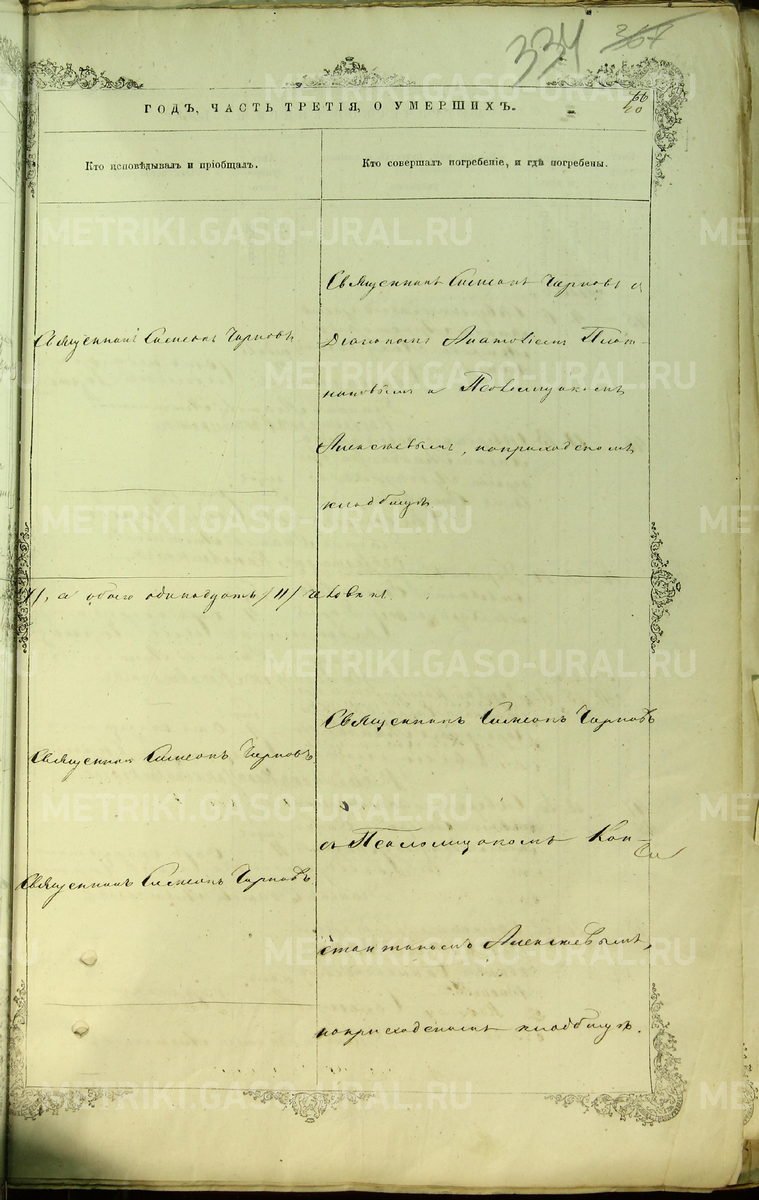 334 367
ГОДЪ, ЧАСТЬ ТРЕТІЯ, О УМЕРШИХЪ.
Кто исповѣдывалъ и пріобщалъ.
Кто совершалъ погребеніе, и гдѣ погребены.
Священникъ Симеонъ Черновъ
Священникъ Симеонъ Черновъ съ
Діакономъ Плот-
никовымъ и Псаломщикомъ
Алексѣевымъ, наприходскомъ
кладбищѣ
11, а обоего одинадцать /11/ человѣкъ
Священникъ Симеонъ Черновъ
Священникъ Симеонъ Черновъ
Священникъ Симеонъ Черновъ
съ Псаломщикомъ Кон-
стантиномъ Алексѣевымъ,
наприходскомъ кладбищѣ.
METRIKI.GASO-URAL.RU